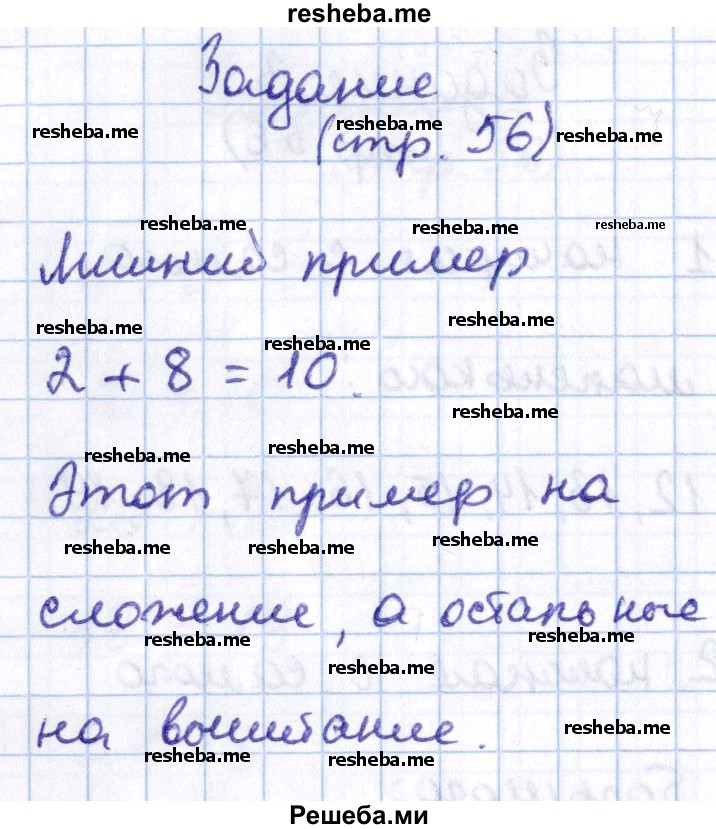 resheba.me
Задание
resheba.me resheba.me
(стр. 56) resheba.me
resheba.me resheba.me resheba.me
Лишний пример
resheba.me resheba.me resheba.me
2 + 8 = 10.
resheba.me
resheba.me resheba.me
Этот пример на
resheba.me resheba.me resheba.me
сложение, а остальные
resheba.me resheba.me
resheba.me
на вычитание. resheba.me
resheba.me resheba.me
Решеба.ми